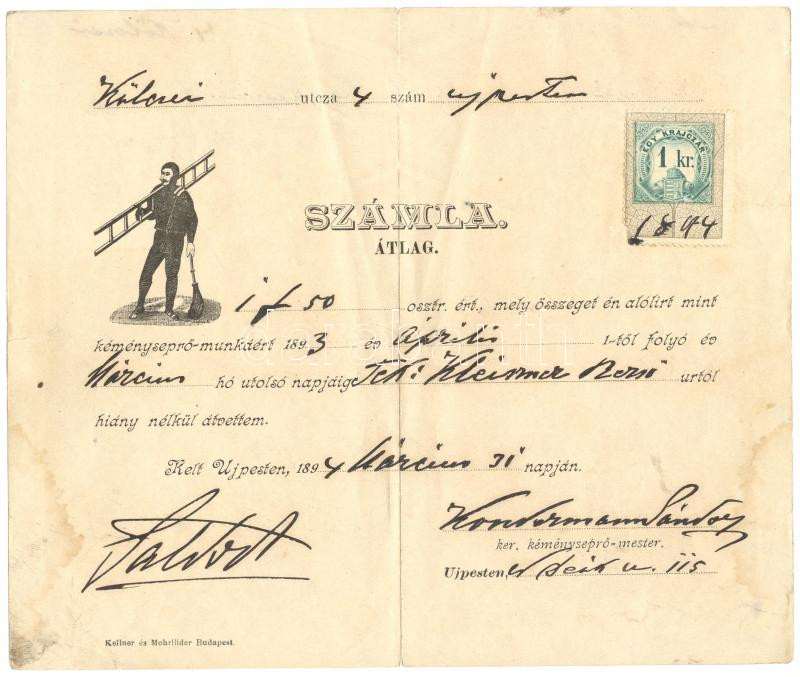 Kölcsei utcza 4 szám ujpesten
EGY KRAJCZÁR
1 kr.
1894
SZÁMLA.
ÁTLAG.
1 f 50 osztr. ért., mely összeget én alólirt mint
kéményseprő-munkáért 1893 év Április 1-től folyó év
Március hó utolsó napjáig Tek: urtól
hiány nélkül átvettem.
Kelt Ujpesten, 1894 Március 31 napján.
Kondermann Sándor
ker. kéményseprő-mester.
Ujpesten, Deák u. 115
Kellner és Mohrlüder Budapest.